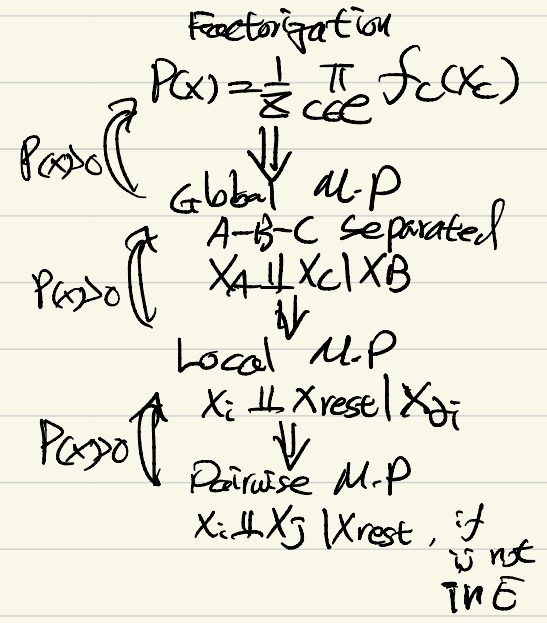 Factorization
P(x) = 1/Z ∏_{c∈C} f_c(x_c)
P(x)>0
⇓
Global M.P
A-B-C separated
X_A ⫫ X_C | X_B
P(x)>0
⇓
Local M.P
X_i ⫫ X_rest | X_∂i
P(x)>0
⇓
Pairwise M.P
X_i ⫫ X_j | X_rest, if
ij not
in E